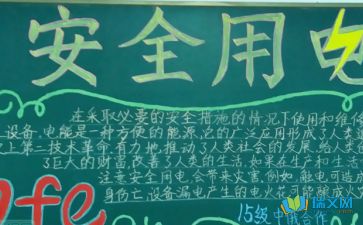 安全用电
在采取必要的安全措施的情况下使用和维修
设备.电能是一种方便的能源,它的广泛应用形成了人类
上第二技术革命.有力地推动了人类社会的发展,给人类创
了巨大的财富,改善了人类的生活.如果在生产和生活
注意安全用电,会带来灾害.例如,触电可造成
身伤亡,设备漏电产生的电火花可能酿成火
fe
15级中俄合作
保文网